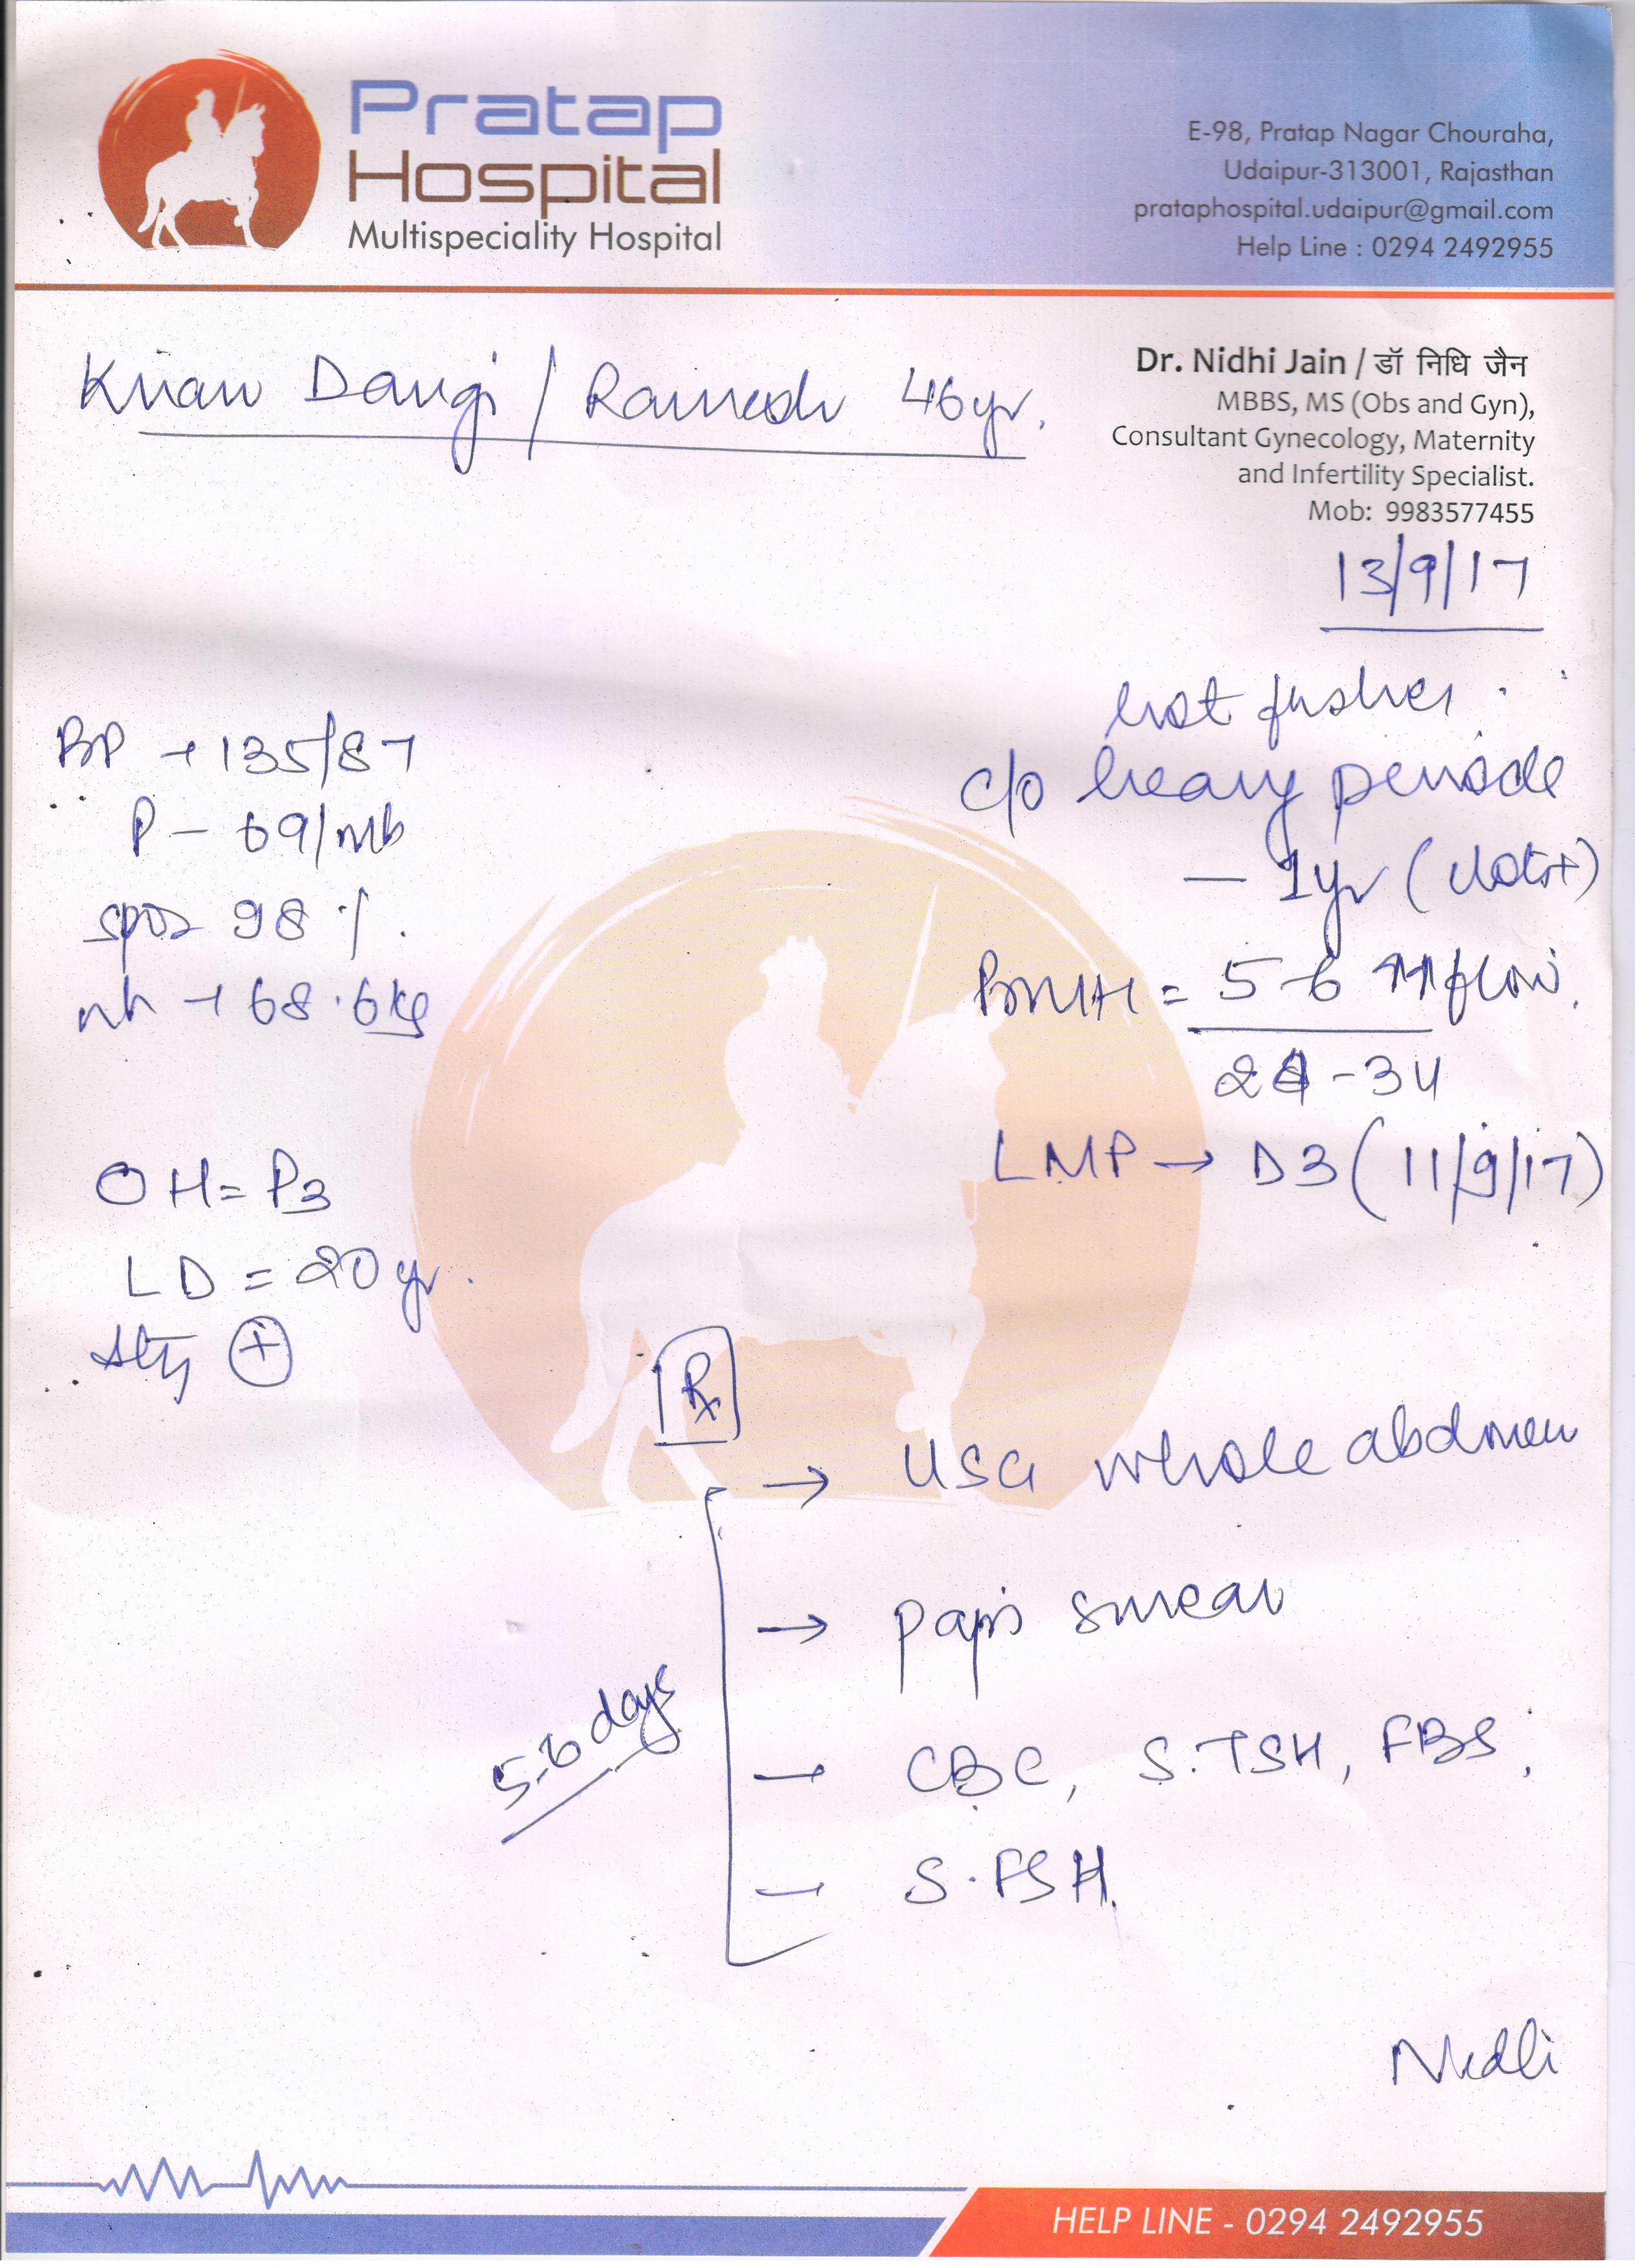 Pratap
Hospital
Multispeciality Hospital
E-98, Pratap Nagar Chouraha,
Udaipur-313001, Rajasthan
prataphospital.udaipur@gmail.com
Help Line : 0294 2492955
Dangi / Ramesh 46yr.
Dr. Nidhi Jain / डॉ निधि जैन
MBBS, MS (Obs and Gyn),
Consultant Gynecology, Maternity
and Infertility Specialist.
Mob: 9983577455
13/9/17
BP → 135/87
P - 69/mb
spo2 98 %.
→ 68.6kg
OH = P3
LD = 20 yr.
+
hot flushes.
c/o heavy periods
- 1yr (clots+)
= 5-6 ↑↑ flow.
-34
LMP → D3 (11/9/17)
Rx
→ USG whole abdomen
→ pap's smear
- CBC, S.TSH, FBS,
- S.FSH.
5-6 days
Nidhi
HELP LINE - 0294 2492955